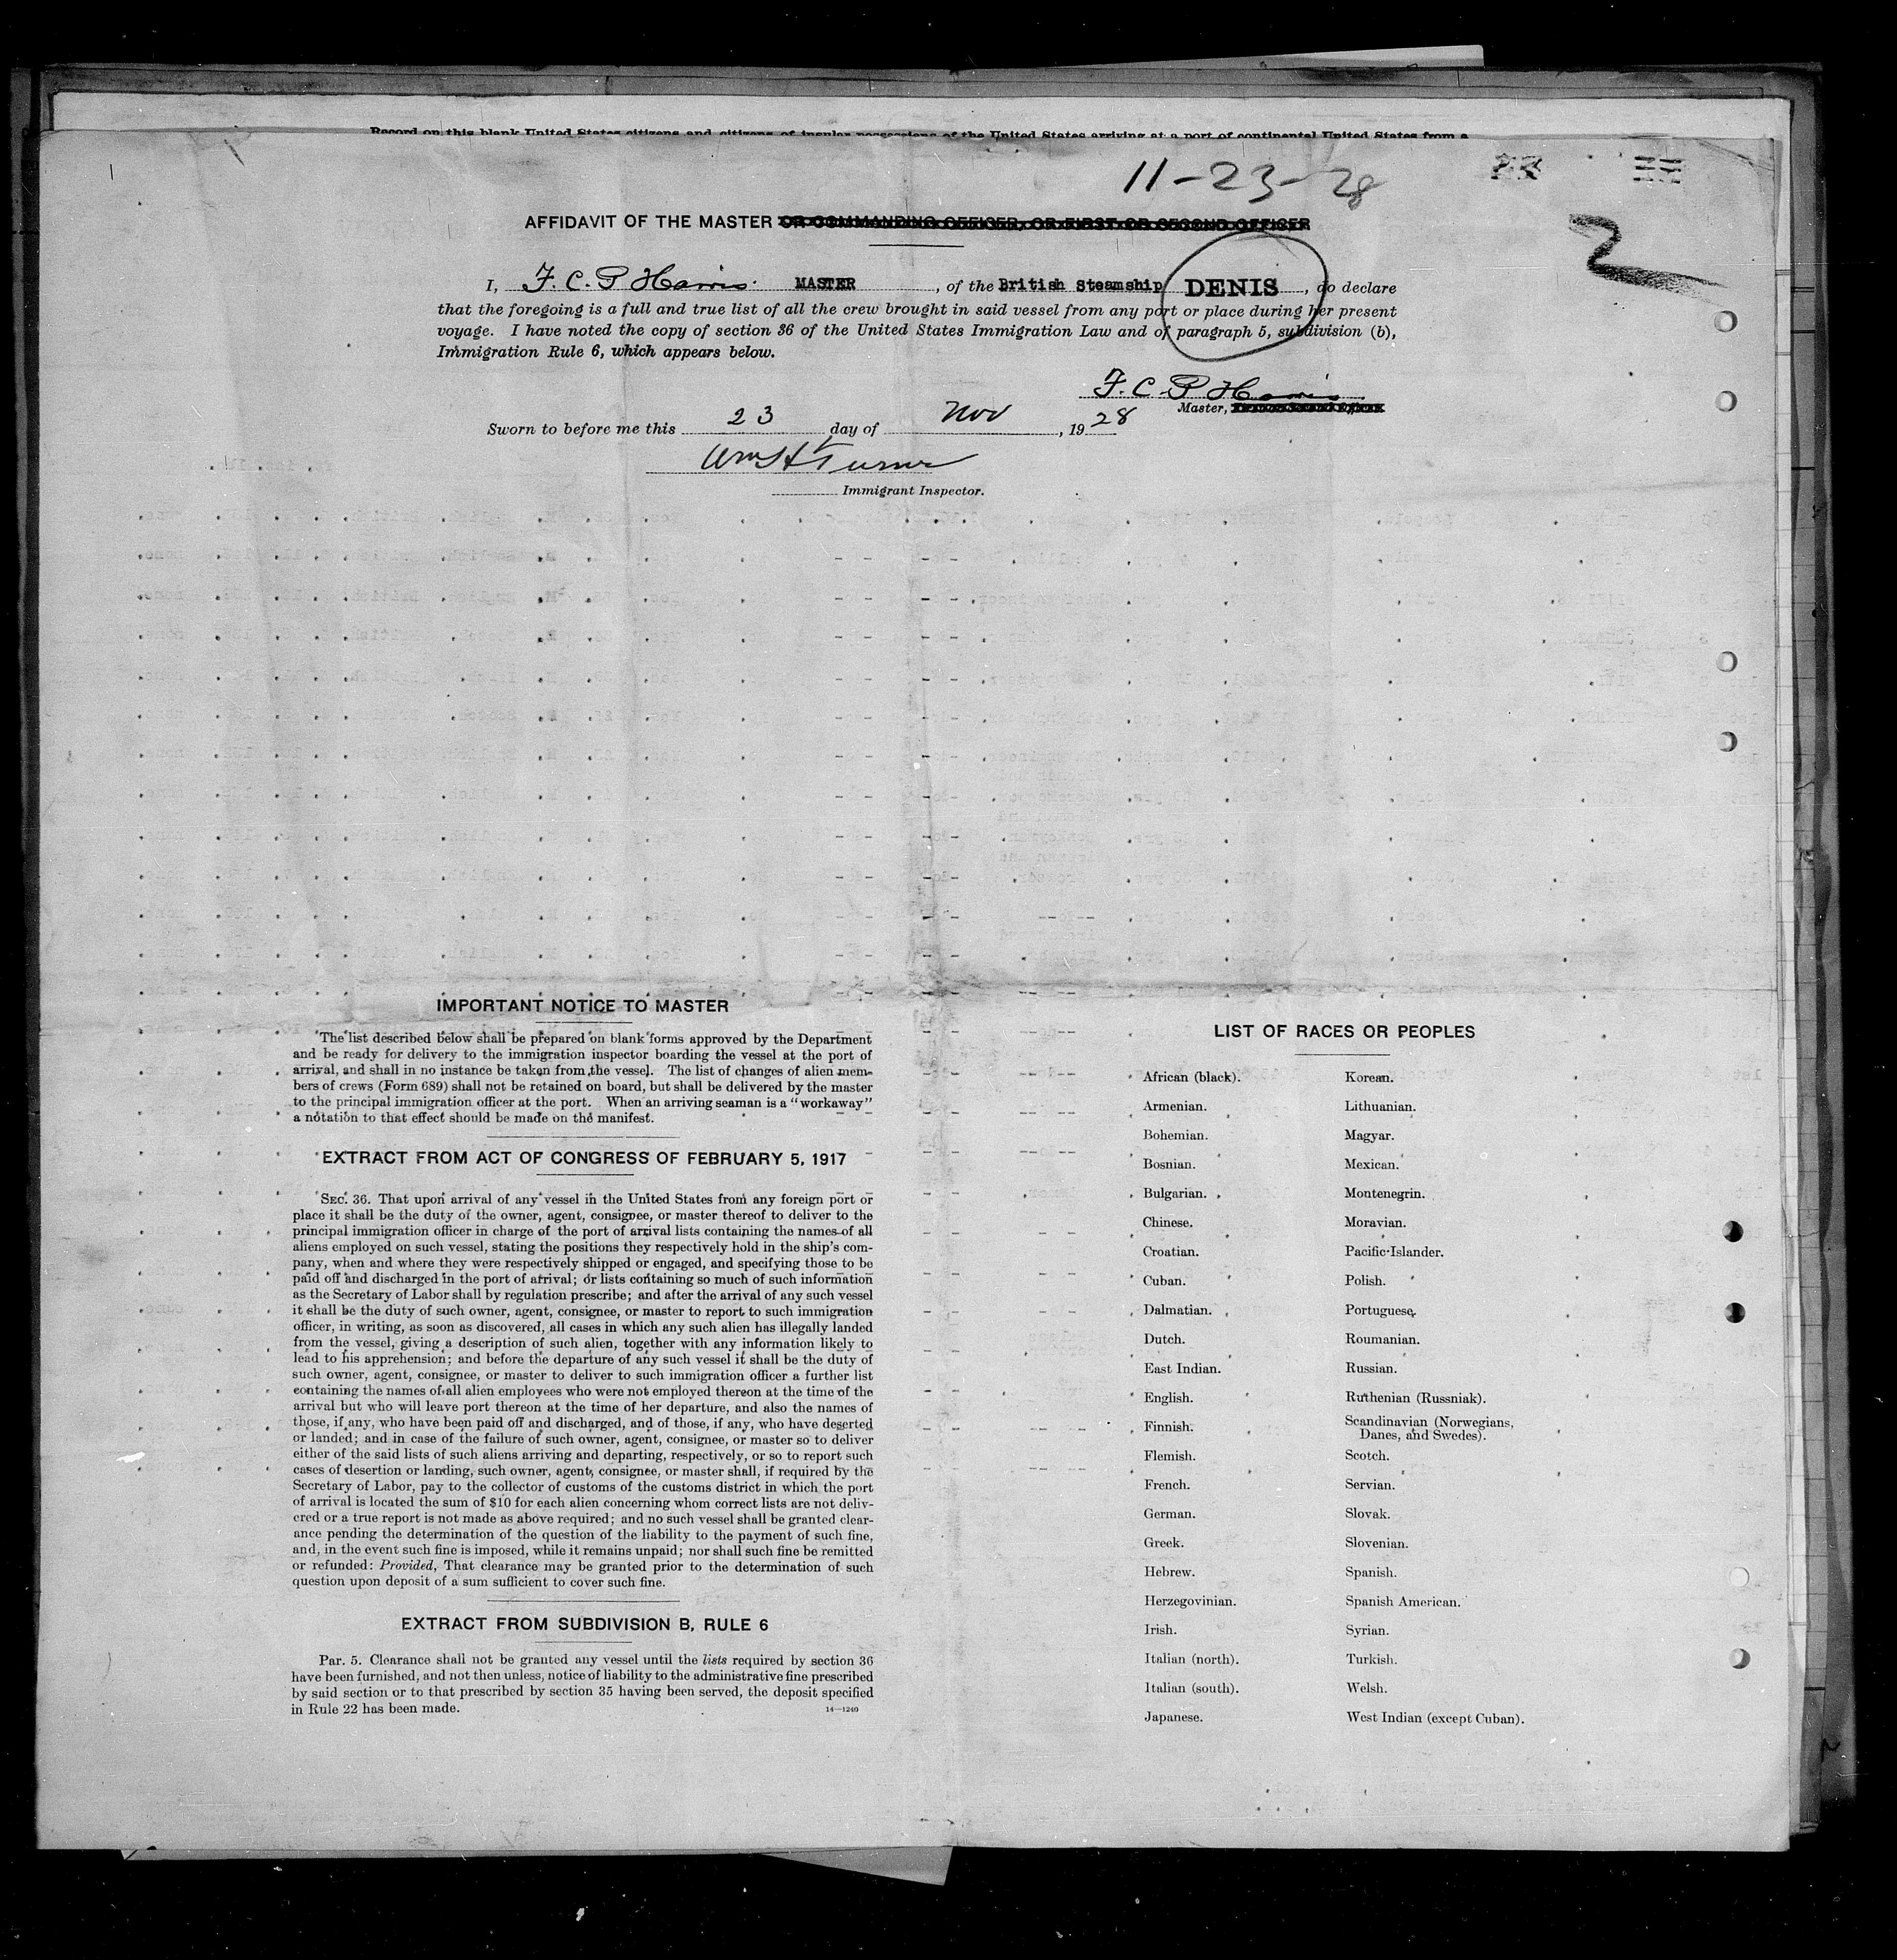 Record on this blank United States citizens and citizens of insular possessions of the United States arriving at a port of continental United States from a
11-23-28
2
AFFIDAVIT OF THE MASTER OR COMMANDING OFFICER, OR FIRST OR SECOND OFFICER
I, F. C. P Harris. MASTER, of the British Steamship DENIS, do declare
that the foregoing is a full and true list of all the crew brought in said vessel from any port or place during her present
voyage. I have noted the copy of section 36 of the United States Immigration Law and of paragraph 5, subdivision (b),
Immigration Rule 6, which appears below.
F. C. P Harris
Master,
Sworn to before me this 23 day of Nov, 1928
Wm H Turner
Immigrant Inspector.
IMPORTANT NOTICE TO MASTER
The list described below shall be prepared on blank forms approved by the Department
and be ready for delivery to the immigration inspector boarding the vessel at the port of
arrival, and shall in no instance be taken from the vessel. The list of changes of alien mem-
bers of crews (Form 689) shall not be retained on board, but shall be delivered by the master
to the principal immigration officer at the port. When an arriving seaman is a "workaway"
a notation to that effect should be made on the manifest.
EXTRACT FROM ACT OF CONGRESS OF FEBRUARY 5, 1917
SEC. 36. That upon arrival of any vessel in the United States from any foreign port or
place it shall be the duty of the owner, agent, consignee, or master thereof to deliver to the
principal immigration officer in charge of the port of arrival lists containing the names of all
aliens employed on such vessel, stating the positions they respectively hold in the ship's com-
pany, when and where they were respectively shipped or engaged, and specifying those to be
paid off and discharged in the port of arrival; or lists containing so much of such information
as the Secretary of Labor shall by regulation prescribe; and after the arrival of any such vessel
it shall be the duty of such owner, agent, consignee, or master to report to such immigration
officer, in writing, as soon as discovered, all cases in which any such alien has illegally landed
from the vessel, giving a description of such alien, together with any information likely to
lead to his apprehension; and before the departure of any such vessel it shall be the duty of
such owner, agent, consignee, or master to deliver to such immigration officer a further list
containing the names of all alien employees who were not employed thereon at the time of the
arrival but who will leave port thereon at the time of her departure, and also the names of
those, if any, who have been paid off and discharged, and of those, if any, who have deserted
or landed; and in case of the failure of such owner, agent, consignee, or master so to deliver
either of the said lists of such aliens arriving and departing, respectively, or so to report such
cases of desertion or landing, such owner, agent, consignee, or master shall, if required by the
Secretary of Labor, pay to the collector of customs of the customs district in which the port
of arrival is located the sum of $10 for each alien concerning whom correct lists are not deliv-
ered or a true report is not made as above required; and no such vessel shall be granted clear-
ance pending the determination of the question of the liability to the payment of such fine,
and, in the event such fine is imposed, while it remains unpaid; nor shall such fine be remitted
or refunded: Provided, That clearance may be granted prior to the determination of such
question upon deposit of a sum sufficient to cover such fine.
EXTRACT FROM SUBDIVISION B, RULE 6
Par. 5. Clearance shall not be granted any vessel until the lists required by section 36
have been furnished, and not then unless, notice of liability to the administrative fine prescribed
by said section or to that prescribed by section 35 having been served, the deposit specified
in Rule 22 has been made.
14—1240
LIST OF RACES OR PEOPLES
African (black).
Armenian.
Bohemian.
Bosnian.
Bulgarian.
Chinese.
Croatian.
Cuban.
Dalmatian.
Dutch.
East Indian.
English.
Finnish.
Flemish.
French.
German.
Greek.
Hebrew.
Herzegovinian.
Irish.
Italian (north).
Italian (south).
Japanese.
Korean.
Lithuanian.
Magyar.
Mexican.
Montenegrin.
Moravian.
Pacific Islander.
Polish.
Portuguese.
Roumanian.
Russian.
Ruthenian (Russniak).
Scandinavian (Norwegians,
Danes, and Swedes).
Scotch.
Servian.
Slovak.
Slovenian.
Spanish.
Spanish American.
Syrian.
Turkish.
Welsh.
West Indian (except Cuban).